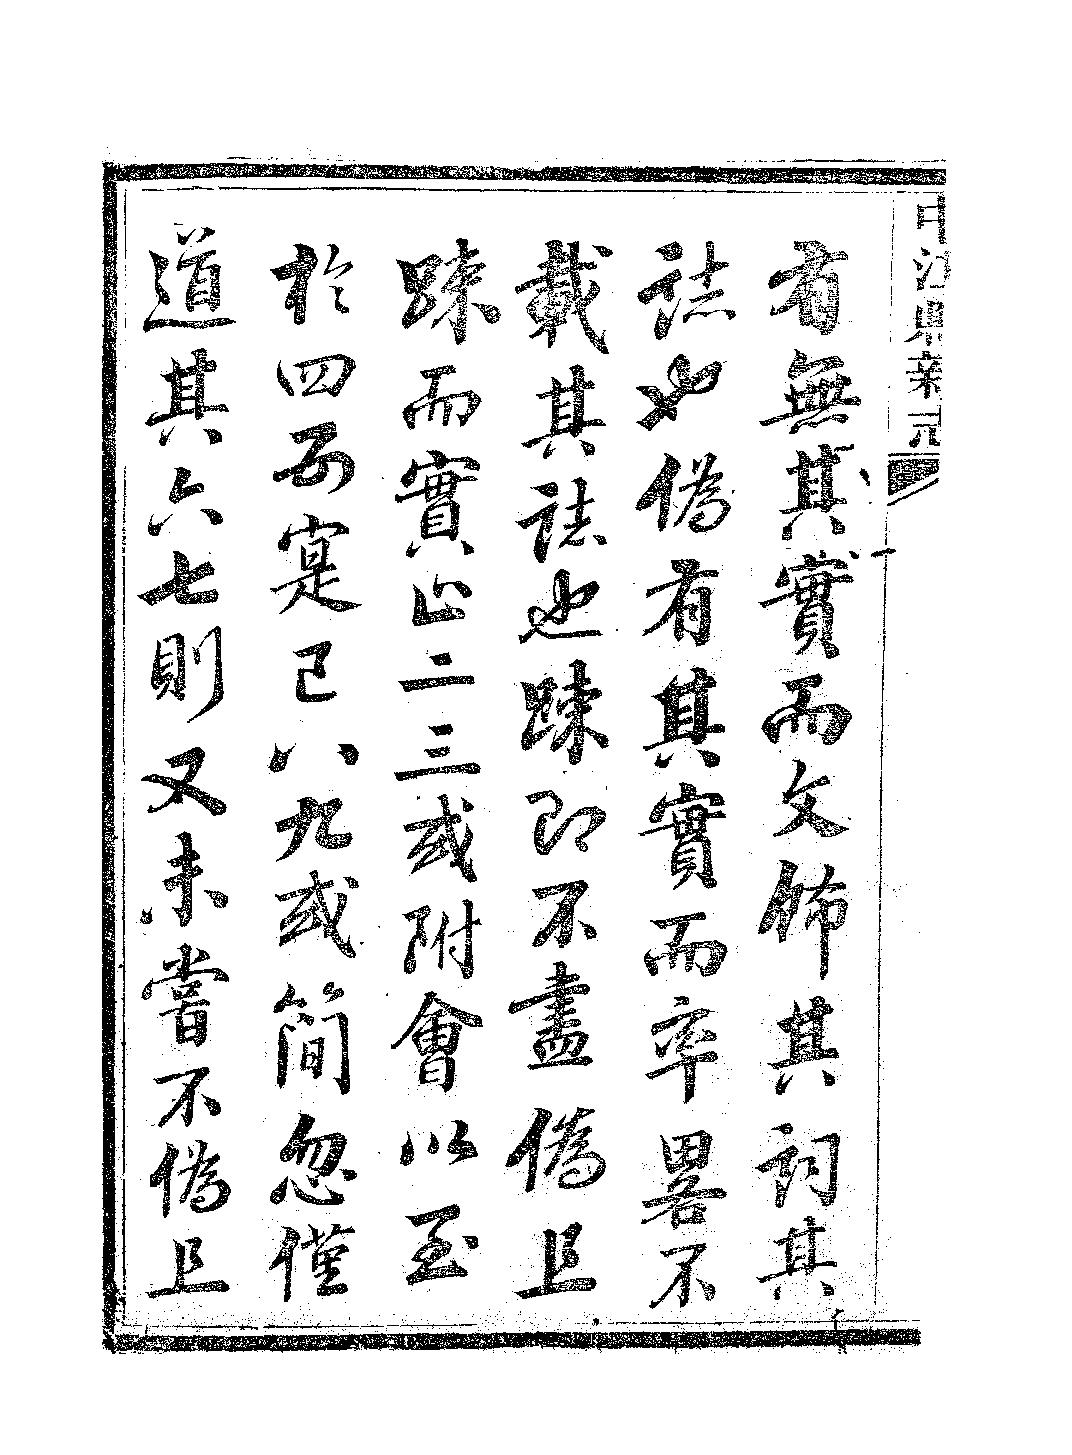 中江縣新志
有無其實而文飾其詞其
誌也偽有其實而卒畧不
載其誌也踈即不盡偽且
踈而實止二三或附會以至
於四而寔已八九或簡忽僅
道其六七則又未嘗不偽且